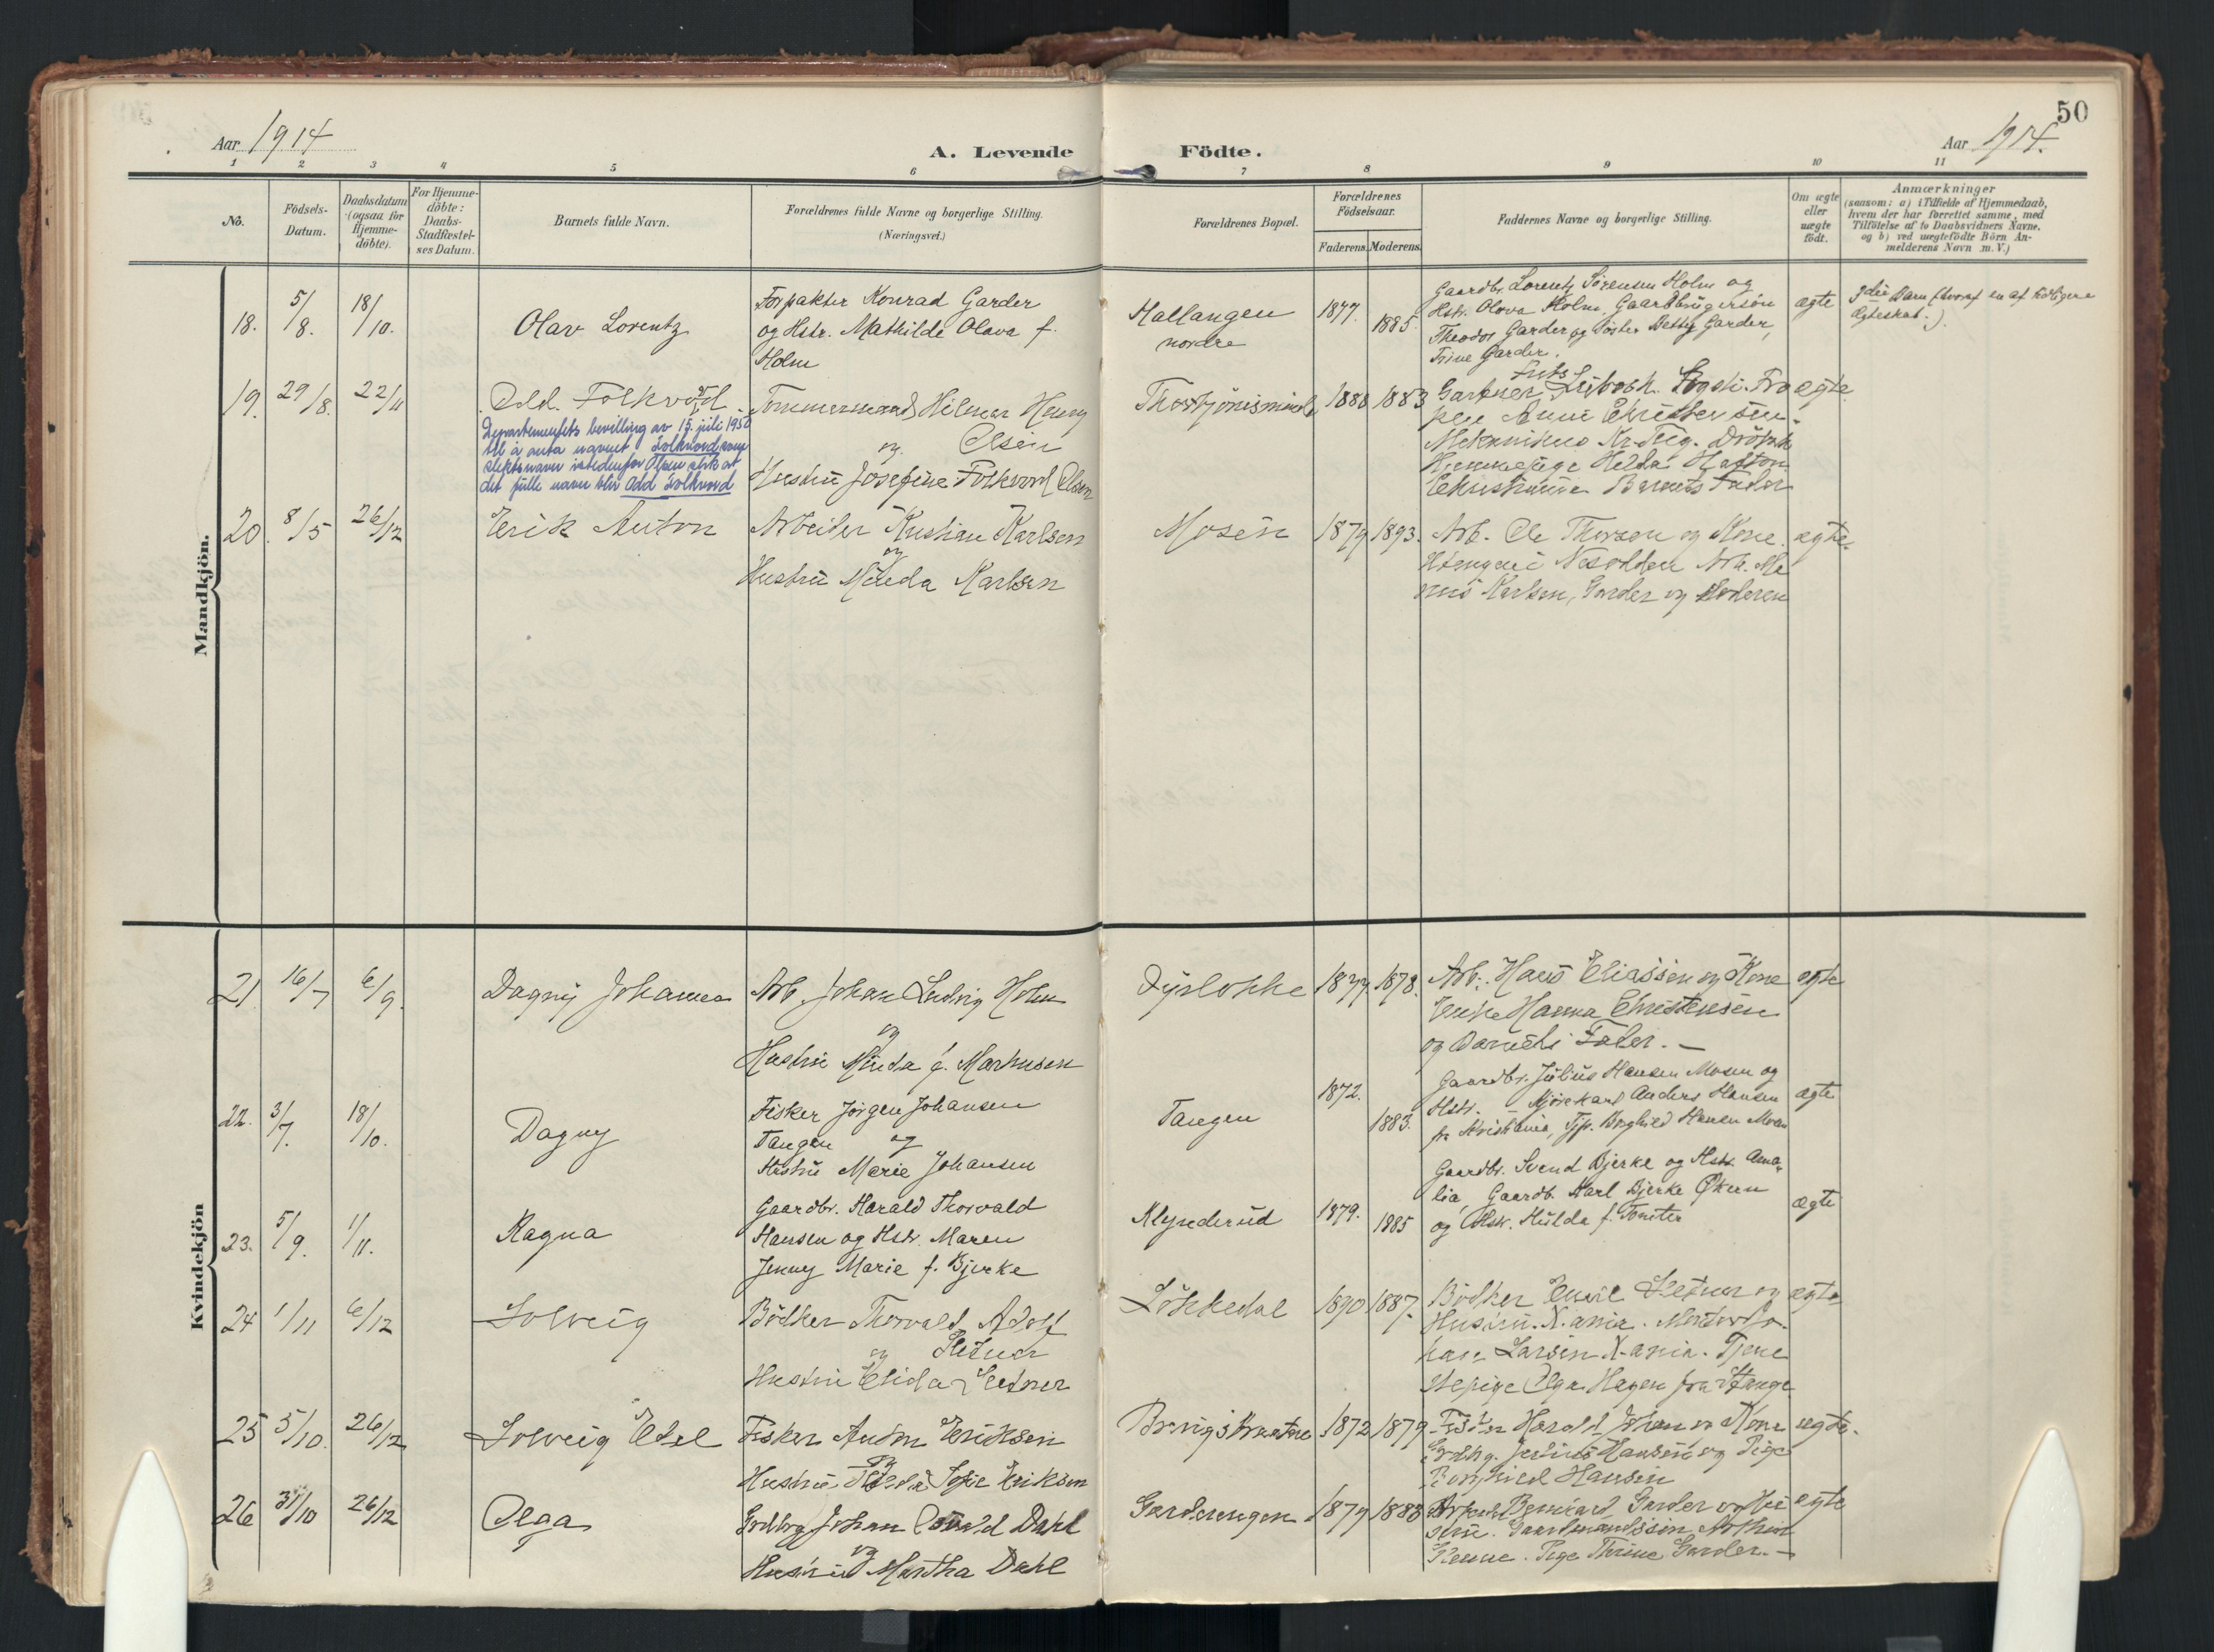 50
Aar 1914
A. Levende Födte.
Aar 1914.
1 2 3 4 5 6 7 8 9 10 11
No.
Födsels-
Datum.
Daabsdatum
(ogsaa for
Hjemme-
döbte).
For Hjemme-
döbte:
Daabs-
Stadfæstel-
ses Datum.
Barnets fulde Navn.
Forældrenes fulde Navne og borgerlige Stilling.
(Næringsvei.)
Forældrenes Bopæl.
Forældrenes
Födselsaar.
Faderens. Moderens.
Faddernes Navne og borgerlige Stilling.
Om ægte
eller
uægte
födt.
Anmærkninger
(saasom: a) i Tilfælde af Hjemmedaab,
hvem der har forrettet samme, med
Tilföielse af to Daabsvidners Navne.
og b) ved uægtefödte Börn An-
melderens Navn m. V.)
Mandkjön.
18. 5/8. 18/10.
Olav Lorentz
Forpakter Konrad Garder
og Hstr. Mathilde Olava f.
Holm
Hallangen
nordre
1877. 1885.
Gaardbr. Lorentz Sörensen Holm og
Hstr. Olava Holm, Gaardbrugersön
Theodor Garder og Söster Betty Garder,
Trine Garder.
ægte
3die Barn (hvoraf en af tidligere
Ægteskab.)
19. 29/8. 22/11
Odd. Folkvord.
Departementets bevilling av 15. juli 1950
til å anta navnet Folkvord som
slektsnavn istedenfor Olsen slik at
det fulle navn blir Odd Folkvord
Tømmermand Hilmar Henry
og Olsen
Hustru Josefine Folkvord Olsen
1888 1883
Gartner
Anne Christensen.
Mekanikus Dröbak
Christiania Barnets Fader
ægte
20. 8/5 26/12
Erik Anton
Arbeider Kristian Karlsen
og
Hustru Minda Karlsen
Mosen
1879 1893.
Arb. Ole Thorsen og Kone
i Nesodden Arb. Ma
Karlsen, Garder og Moderen
ægte.
Kvindekjön
21. 16/7 6/9.
Dagny Johanna
Arb. Johan Ludvig Holm
og
Hustru Minda f. Markusen
Dyrlökke
1877. 1878.
Arb. Hans Eliassen og Kone
Enke Hanna Christensen
og Barnets Fader. —
ægte
22. 3/7. 18/10.
Dagny
Fisker Jörgen Johansen
Tangen og
Hustru Marie Johansen
Tangen
1872. 1883.
Gaardbr. Julius Hansen Mosen og
Hstr. — Kjörekarl Anders Hansen
fr. Kristiania, Tjp. Borghild Hansen Mosen
ægte
23. 5/9. 1/11.
Ragna
Gaardbr. Harald Thorvald
Hansen og Hstr. Maren
Jenny Marie f. Bjerke
Klynderud
1879. 1885
Gaardbr. Svend Bjerke og Hstr. Ama-
lia, Gaardb. Karl Bjerke Økern
og Hstr. Hulda f. Tomter
ægte
24 1/11 6/12
Solveig
Bödker Thorvald Adolf
og
Hustru Elida
Lökkedal
1890 1887.
Bödker Emil og
Hustru. X-ania.
Larsen X-ania. Tjene
stepige Olga Hagen fra Stange
ægte
25 5/10. 26/12
Solveig Edel
Fisker Anton Eriksen
og
Hustru Sofie Eriksen
1872 1879
Fisker Harald Johansen Kone
Grdbrg. Julius Hansen og Pige
Borghild Hansen
ægte.
26 31/10 26/12
Olga
Grdbrg. Johan Dahl
og
Hustru Martha Dahl
Garderengen
1879 1883
Bernhard Garder og Hu
stru. Gaardmandssön
Pige Thrine Garder. —
ægte